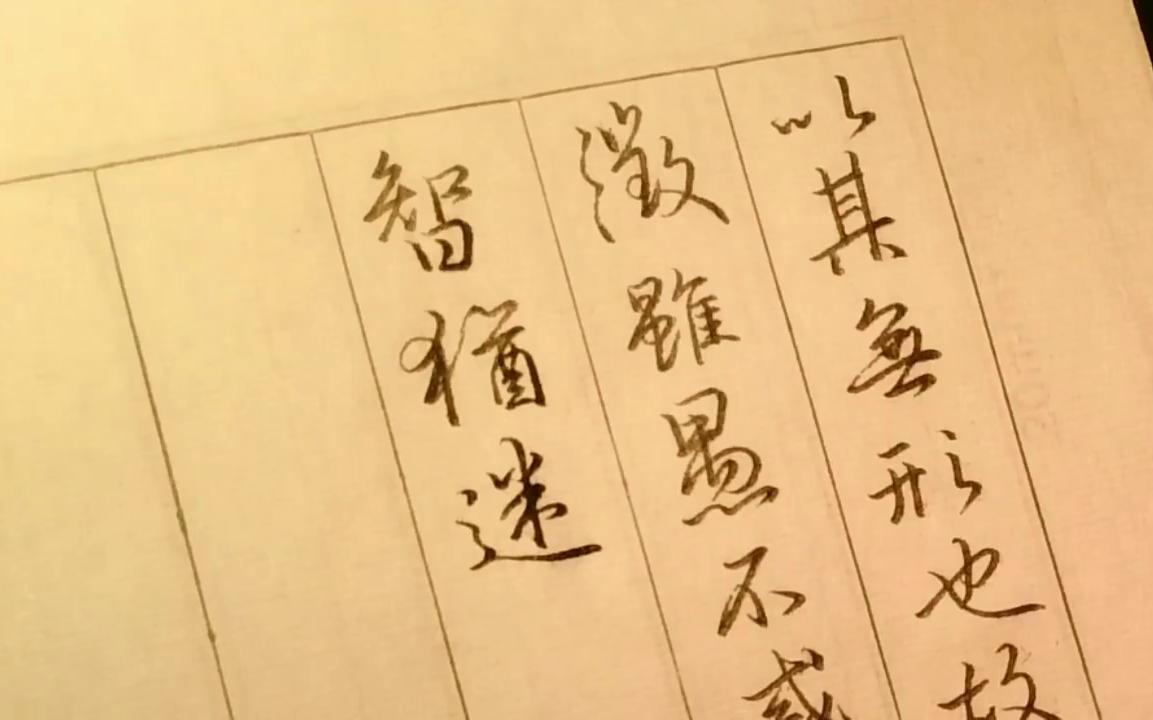 以其無形也故
徵雖愚不惑
智猶迷